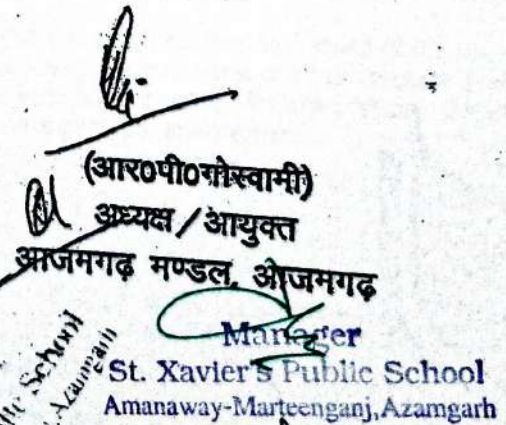 (आर0पी0गोस्वामी)
अध्यक्ष / आयुक्त
आजमगढ़ मण्डल, आजमगढ़
Manager
St. Xavier's Public School
Amanaway-Marteenganj, Azamgarh
School
Azamgarh